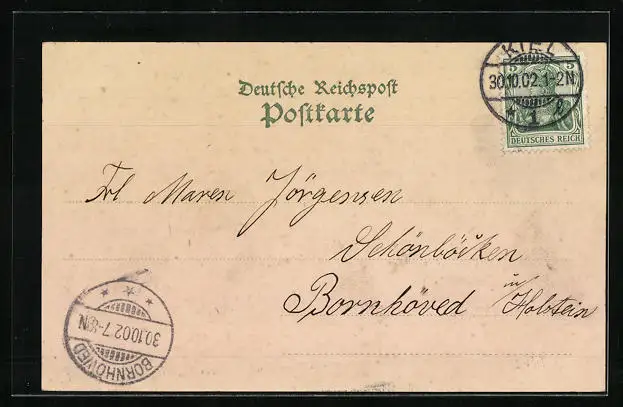 KIEL
5 5
30.10.02.1-2N
* 1 g
DEUTSCHES REICH
Deutsche Reichspost
Postkarte
Frl Maren Jörgensen
Schönböcken
Bornhöved in Holstein
30.10.02.7-8N
BORNHÖVED